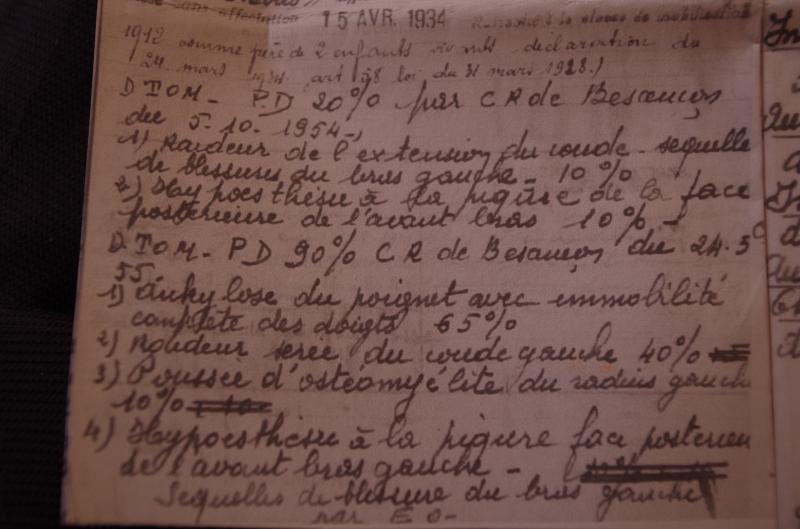 sans affectation
15 AVR. 1934 Rattaché à la classe de mobilisation
1912 comme père de 2 enfants vivants déclaration du
24 mars 1934 (art 58 loi du 31 mars 1928.)
DTOM - PD 20% par CR de Besançon
du 5.10.1954.,
1) Raideur de l'extension du coude - sequelle
de blessures du bras gauche - 10%
2) Hypoesthésie à la piqûre de la face
posterieure de l'avant bras 10% -
DTOM - PD 90% CR de Besançon du 24.5
55.
1) ankylose du poignet avec immobilité
complète des doigts 65%
2) Raideur serée du coude gauche 40%
3) Poussée d'ostéomyélite du radius gauch
10%
4) Hypoesthésie à la piqure face posterieu
de l'avant bras gauche -
Sequelles de blessure du bras gauche
par E O -
In
a
In
d
d